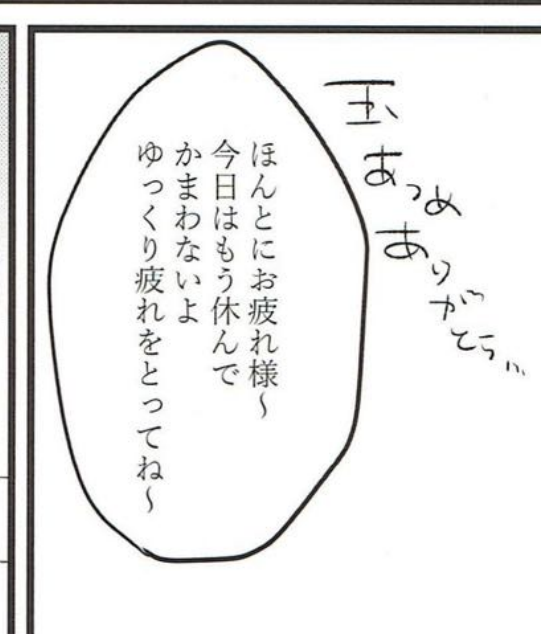 玉
あつめ
ありがとう…
ほんとにお疲れ様～
今日はもう休んで
かまわないよ
ゆっくり疲れをとってね～